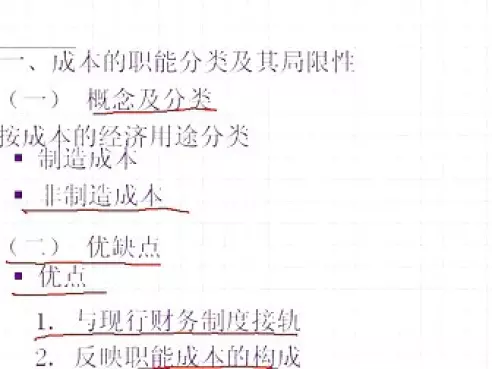 一、成本的职能分类及其局限性
（一） 概念及分类
按成本的经济用途分类
▪ 制造成本
▪ 非制造成本
（二） 优缺点
▪ 优点
1. 与现行财务制度接轨
2. 反映职能成本的构成